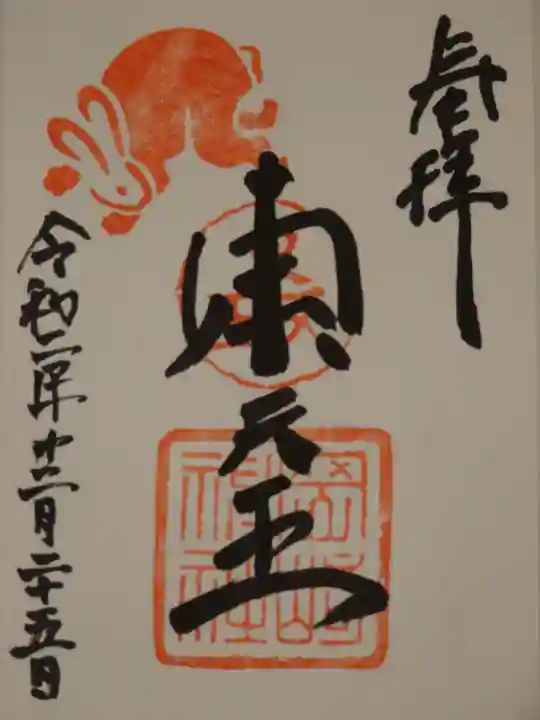 奉拝
東天王
岡崎神社
令和二年十二月二十五日